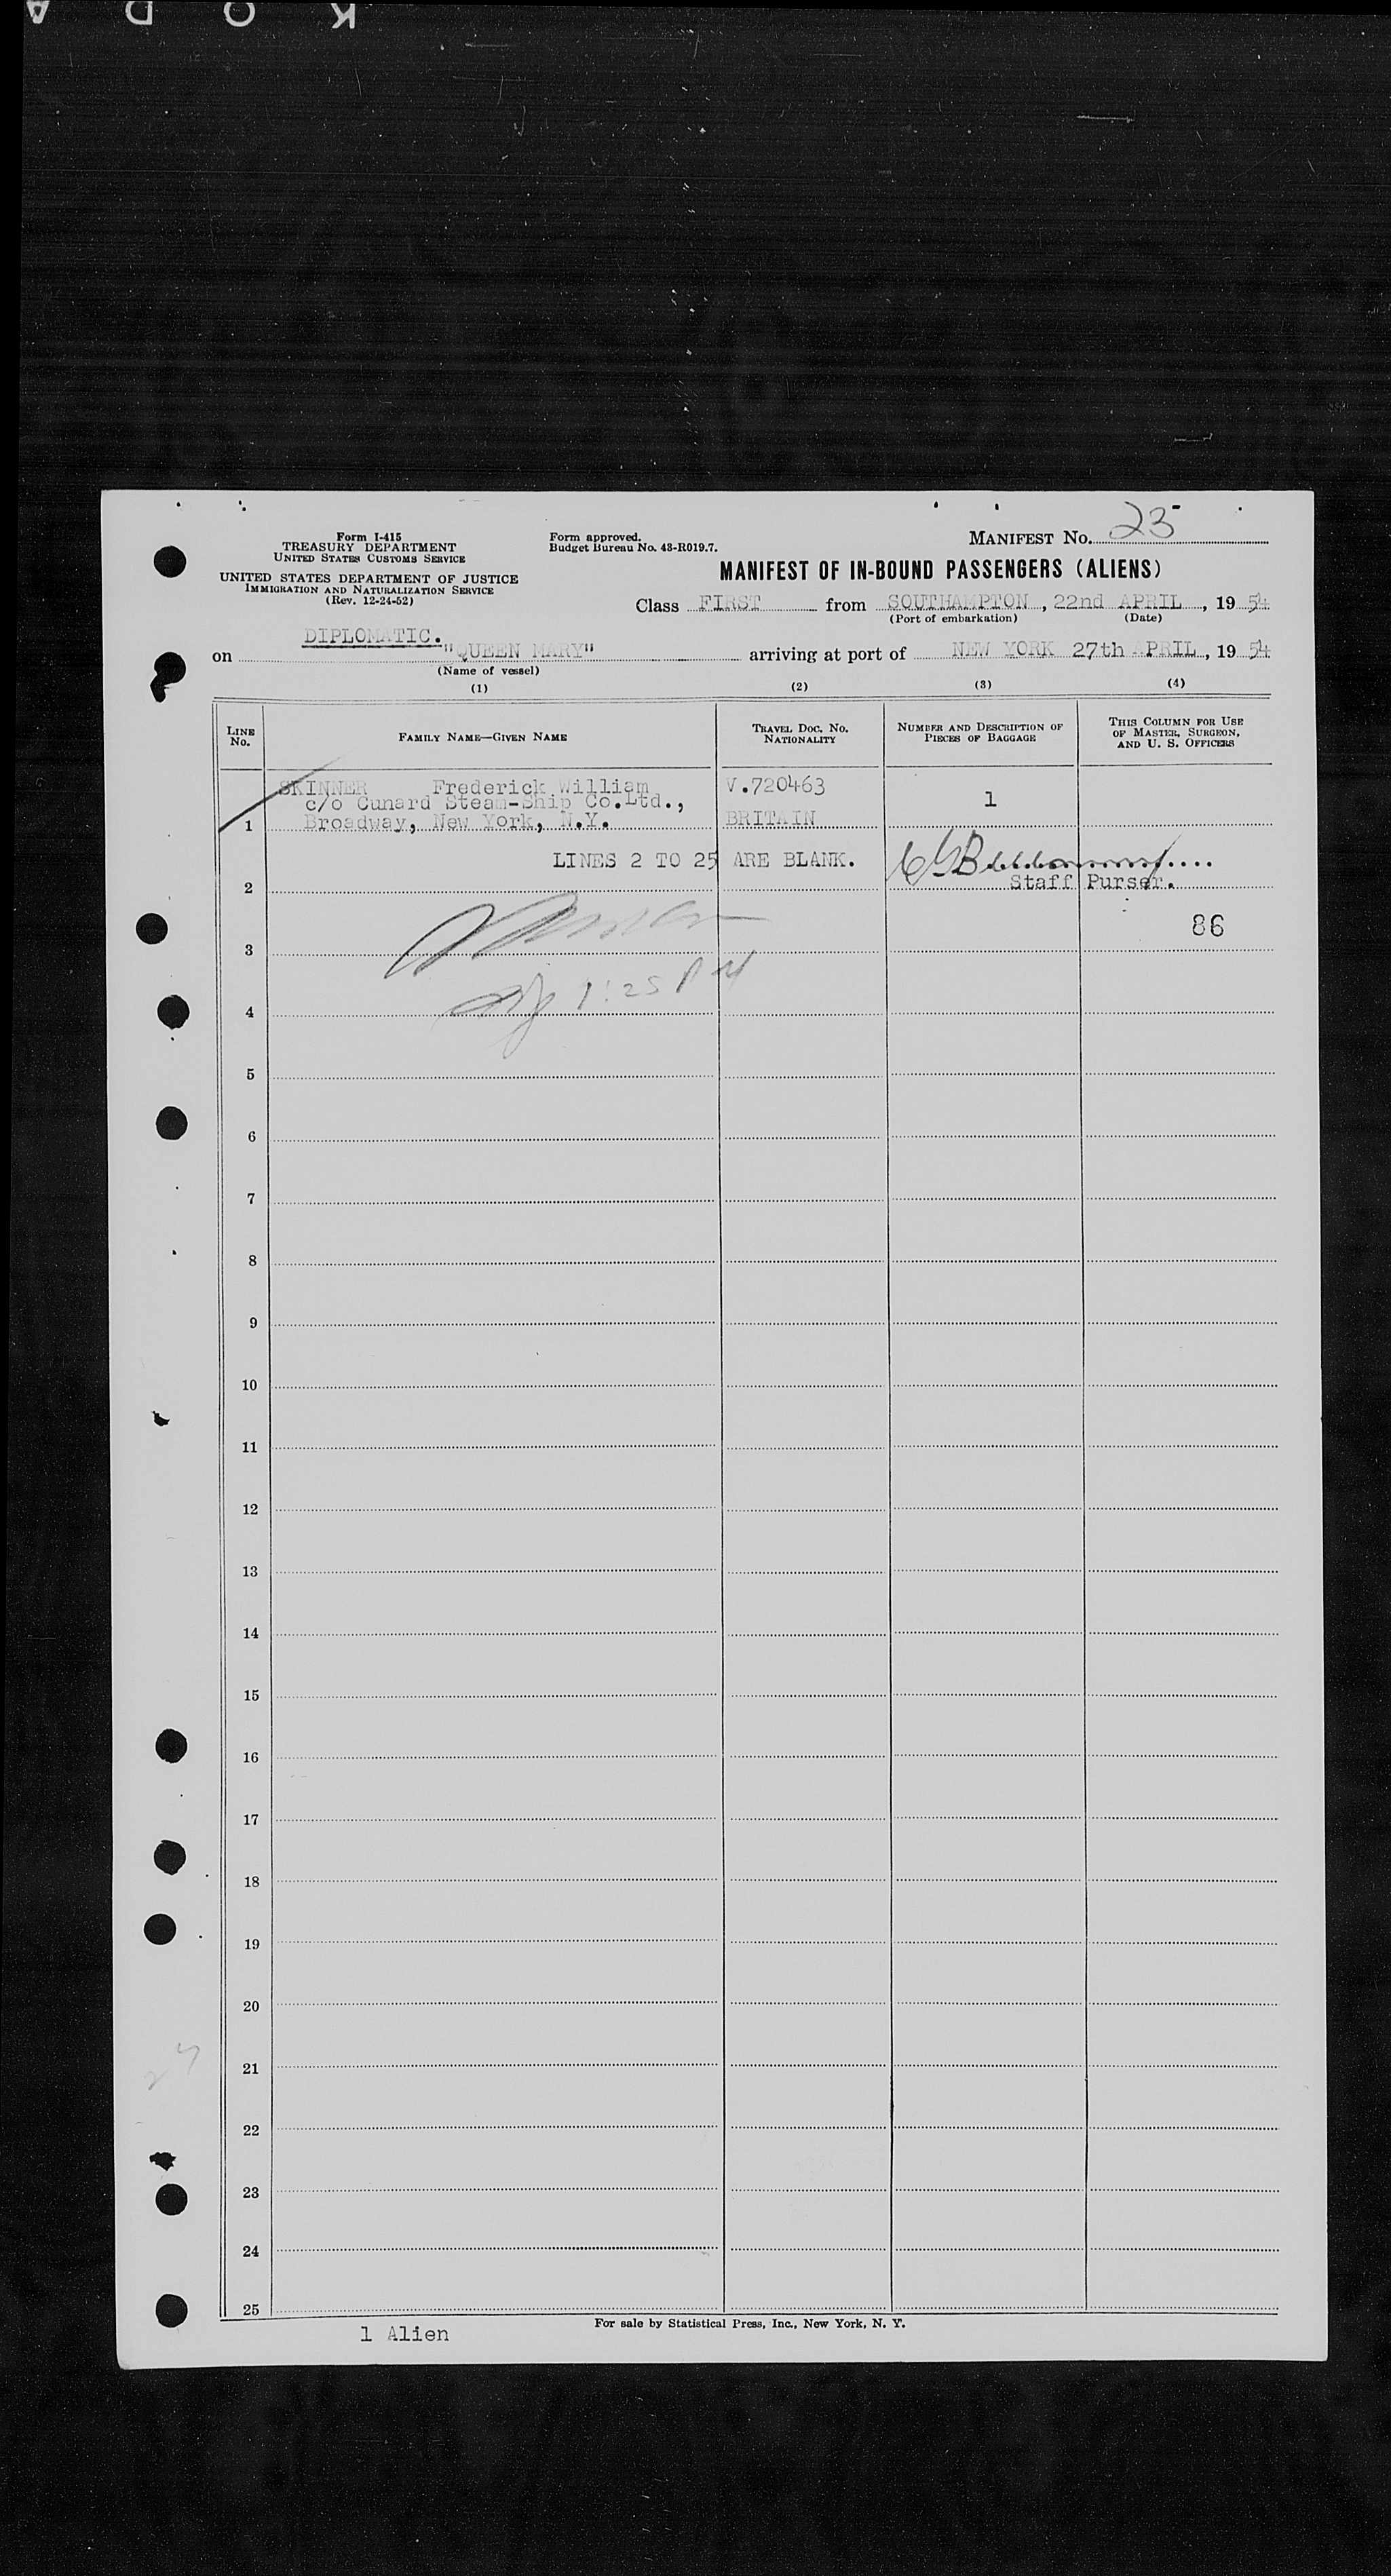 KODA
Form I-415
TREASURY DEPARTMENT
UNITED STATES CUSTOMS SERVICE
UNITED STATES DEPARTMENT OF JUSTICE
IMMIGRATION AND NATURALIZATION SERVICE
(Rev. 12-24-52)
Form approved.
Budget Bureau No. 43-R019.7.
MANIFEST No. 23
MANIFEST OF IN-BOUND PASSENGERS (ALIENS)
Class FIRST from SOUTHAMPTON, 22nd APRIL, 19 54
(Port of embarkation) (Date)
DIPLOMATIC.
on "QUEEN MARY" arriving at port of NEW YORK 27th APRIL, 19 54
(Name of vessel)
(1) (2) (3) (4)
LINE No. FAMILY NAME—GIVEN NAME TRAVEL DOC. NO. NATIONALITY NUMBER AND DESCRIPTION OF PIECES OF BAGGAGE THIS COLUMN FOR USE OF MASTER, SURGEON, AND U. S. OFFICERS
SKINNER Frederick William V.720463
c/o Cunard Steam-Ship Co.Ltd., 1
1 Broadway, New York, N.Y. BRITAIN
LINES 2 TO 25 ARE BLANK.
2 Staff Purser.
86
3
1:25 PM
4
5
6
7
8
9
10
11
12
13
14
15
16
17
18
19
20
21
22
23
24
25
For sale by Statistical Press, Inc., New York, N. Y.
1 Alien